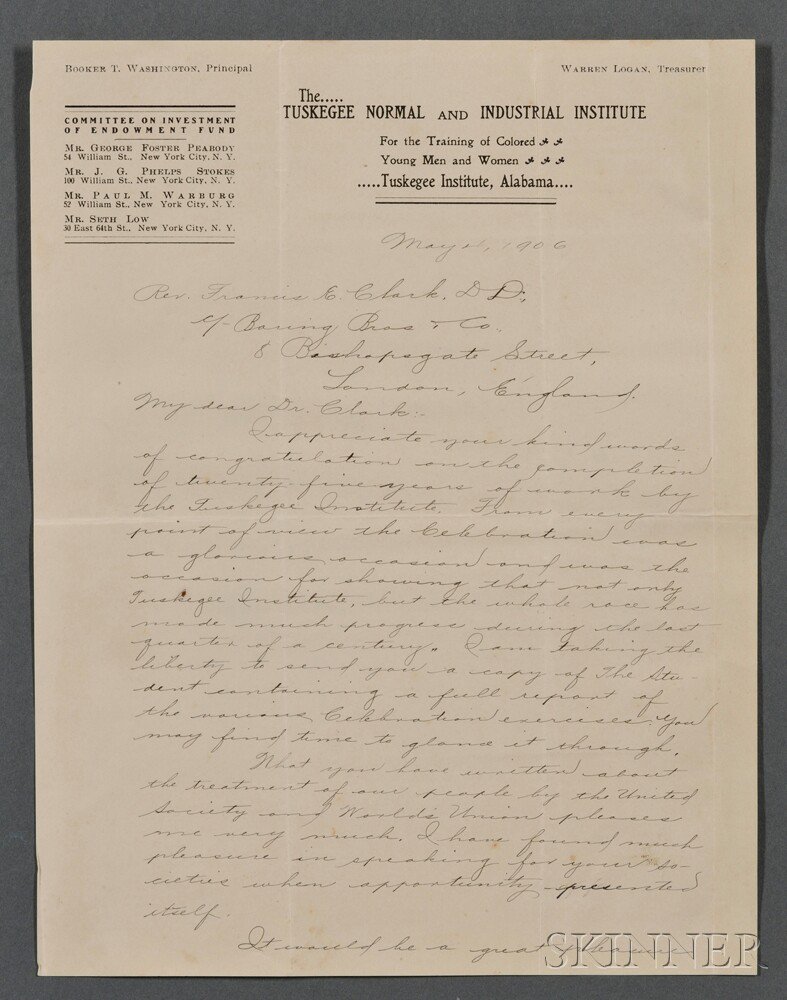 BOOKER T. WASHINGTON, Principal
WARREN LOGAN, Treasurer
COMMITTEE ON INVESTMENT
OF ENDOWMENT FUND
MR. GEORGE FOSTER PEABODY
54 William St., New York City, N. Y.
MR. J. G. PHELPS STOKES
100 William St., New York City, N. Y.
MR. PAUL M. WARBURG
52 William St., New York City, N. Y.
MR. SETH LOW
30 East 64th St., New York City, N. Y.
The.....
TUSKEGEE NORMAL AND INDUSTRIAL INSTITUTE
For the Training of Colored
Young Men and Women
.....Tuskegee Institute, Alabama....
May 1906
Rev. Francis E. Clark, D D,
c/- Baring Bros & Co.,
8 Bishopsgate Street,
London, England.
My dear Dr. Clark:-
I appreciate your kind words
of congratulation on the completion
of twenty-five years of work by
the Tuskegee Institute. From every
point of view the Celebration was
a glorious occasion and was the
occasion for showing that not only
Tuskegee Institute, but the whole race has
made much progress during the last
quarter of a century. I am taking the
liberty to send you a copy of The Stu-
dent containing a full report of
the various Celebration exercises. You
may find time to glance it through.
What you have written about
the treatment of our people by the United
Society and World's Union pleases
me very much. I have found much
pleasure in speaking for your so-
cieties when opportunity presented
itself.
It would be a great pleasure
SKINNER